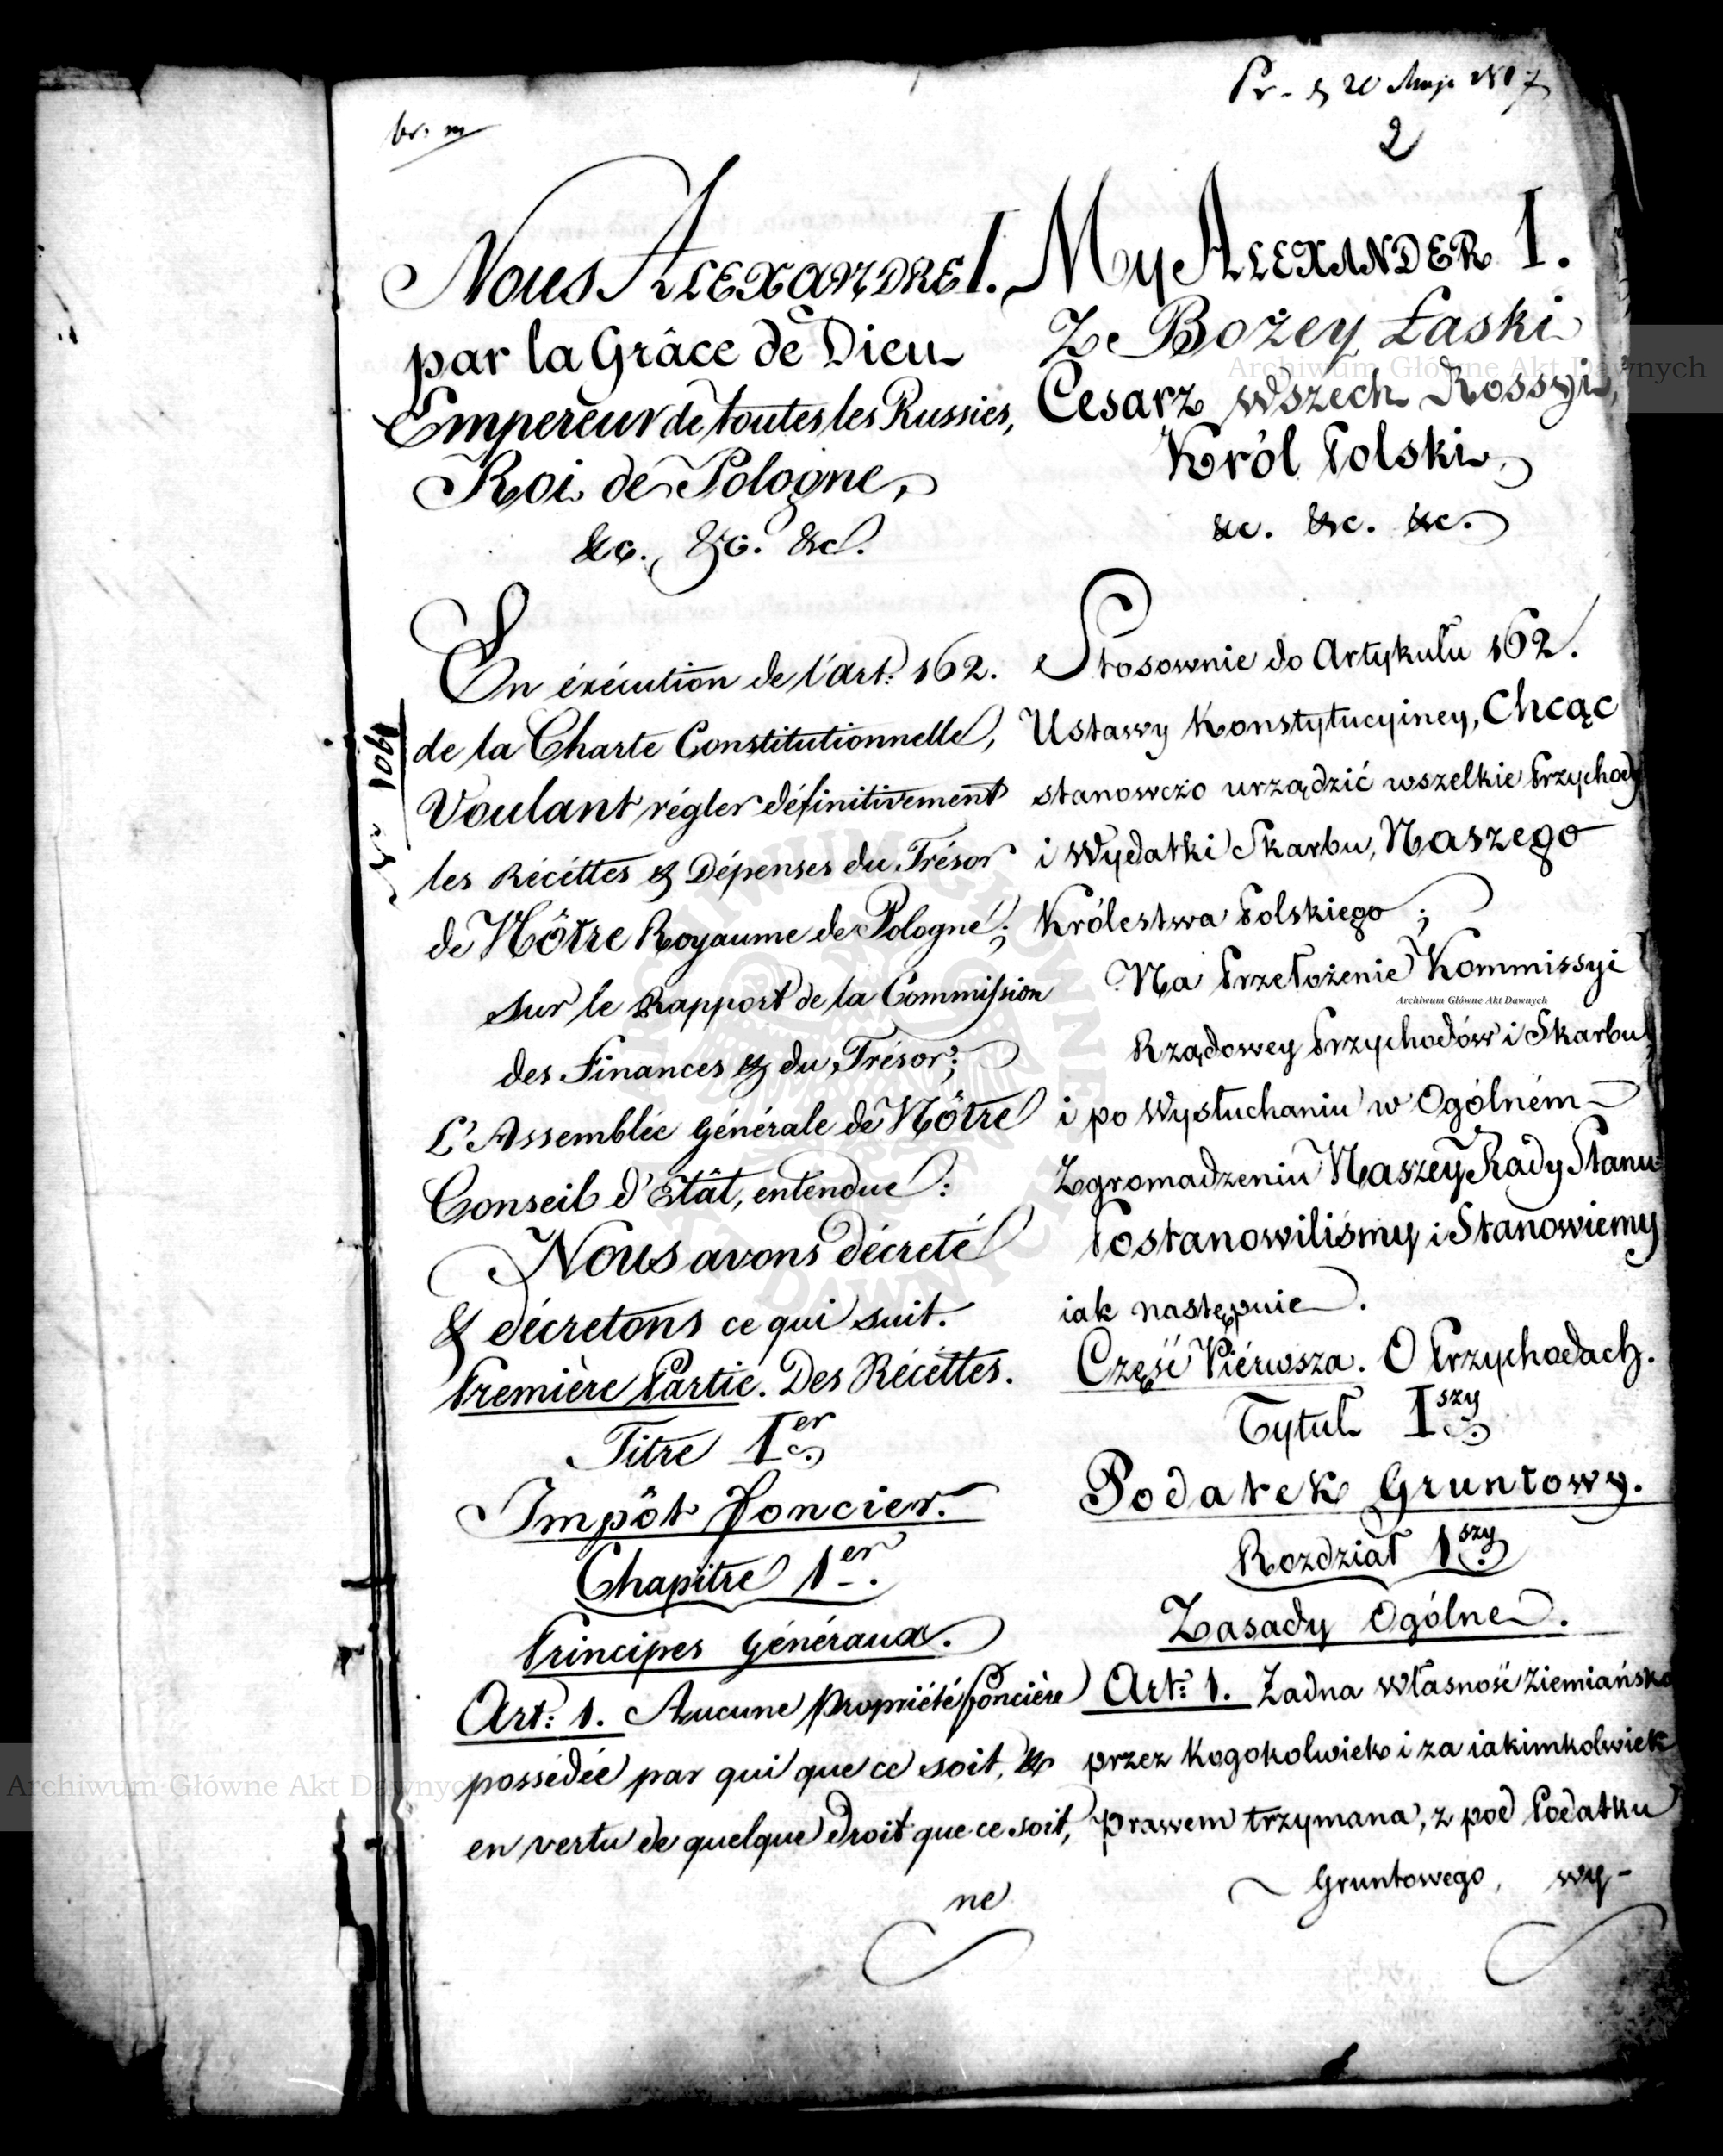 Pr. d 20 Maja 1817
2
Nous ALEXANDRE I.
par la Grâce de Dieu
Empereur de toutes les Russies,
Roi de Pologne,
&c. &c. &c.
En éxécution de l'Art: 162.
de la Charte Constitutionnelle,
Voulant régler définitivement
les Récéttes & Dépenses du Trésor
de Nôtre Royaume de Pologne;
sur le Rapport de la Commission
des Finances & du Trésor;
L'Assemblée Générale de Nôtre
Conseil d'Etât, entendue:
Nous avons décreté
& décretons ce qui suit.
Première Partie. Des Récéttes.
Titre 1er
Impôt foncier.
Chapitre 1er.
Principes Généraux.
Art: 1. Aucune propriété foncière
possédée par qui que ce soit, &
en vertu de quelque droit que ce soit,
ne
My ALEXANDER I.
Z Bożey Łaski
Cesarz Wszech Rossyi,
Król Polski,
&c. &c. &c.
Stosownie do Artykułu 162.
Ustawy Konstytucyiney, Chcąc
stanowczo urządzić wszelkie Przychody
i Wydatki Skarbu, Naszego
Królestwa Polskiego;
Na Przełożenie Kommissyi
Rządowey Przychodów i Skarbu,
i po Wysłuchaniu w Ogólném
Zgromadzeniu Naszey Rady Stanu:
Postanowiliśmy i Stanowiemy
iak następuie.
Część Piérwsza. O Przychodach.
Tytuł Iszy
Podatek Gruntowy.
Rozdział 1szy
Zasady Ogólne.
Art: 1. Żadna Własność Ziemiańska
przez kogokolwiek i za iakimkolwiek
prawem trzymana, z pod Podatku
Gruntowego, wy-
1901
Archiwum Główne Akt Dawnych
Archiwum Główne Akt Dawnych
Archiwum Główne Akt Dawnych
ARCHIWUM GŁÓWNE AKT DAWNYCH